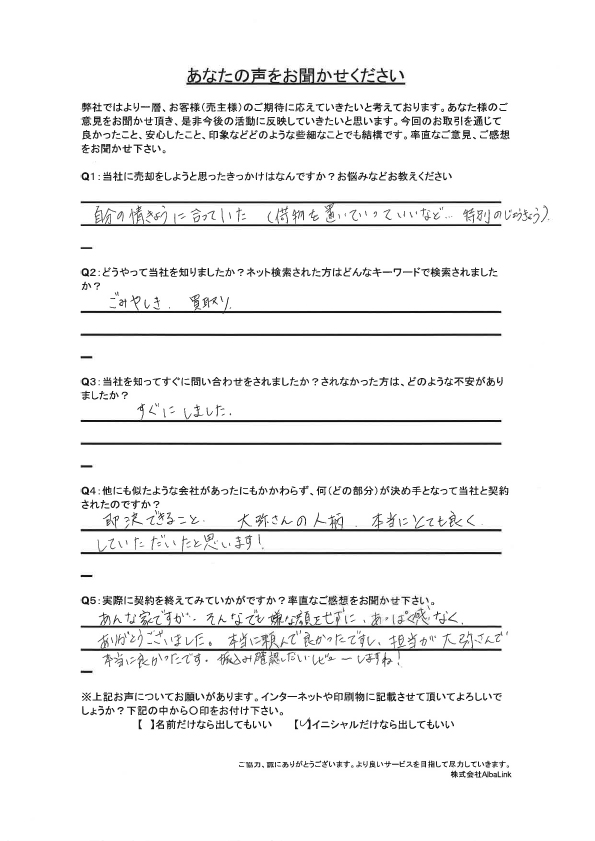 あなたの声をお聞かせください
弊社ではより一層、お客様(売主様)のご期待に応えていきたいと考えております。あなた様のご
意見をお聞かせ頂き、是非今後の活動に反映していきたいと思います。今回のお取引を通じて
良かったこと、安心したこと、印象などどのような些細なことでも結構です。率直なご意見、ご感想
をお聞かせ下さい。
Q1:当社に売却をしようと思ったきっかけはなんですか?お悩みなどお教えください
自分の情きょうに合っていた (荷物を置いていっていいなど… 特別のじょうきょう).
Q2:どうやって当社を知りましたか?ネット検索された方はどんなキーワードで検索されました
か?
ごみやしき. 買取り.
Q3:当社を知ってすぐに問い合わせをされましたか?されなかった方は、どのような不安があり
ましたか?
すぐにしました.
Q4:他にも似たような会社があったにもかかわらず、何(どの部分)が決め手となって当社と契約
されたのですか?
即決できること. 大弥さんの人柄. 本当にとても良く
していただいたと思います!
Q5:実際に契約を終えてみていかがですか?率直なご感想をお聞かせ下さい。
あんな家ですが、そんなでも嫌な顔をせずに、あっぱく感なく、
ありがとうございました。本当に頼んで良かったですし、担当が大弥さんで
本当に良かったです。振込み確認したいレビューしますね!
※上記お声についてお願いがあります。インターネットや印刷物に記載させて頂いてよろしいで
しょうか?下記の中から○印をお付け下さい。
【 】名前だけなら出してもいい 【✓】イニシャルだけなら出してもいい
ご協力、誠にありがとうございます。より良いサービスを目指して尽力していきます。
株式会社AlbaLink